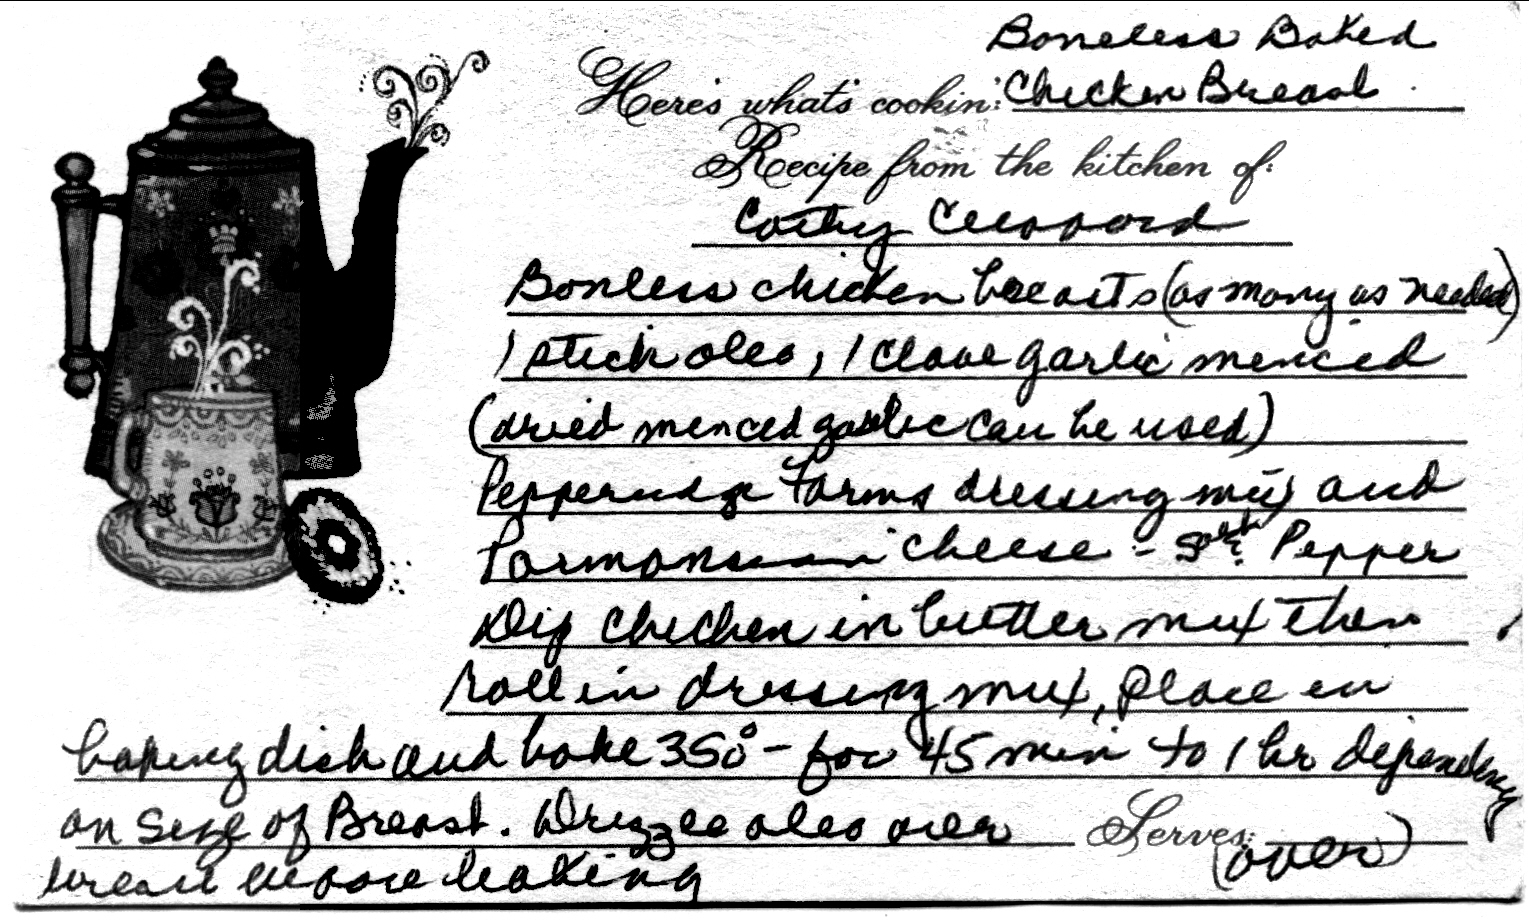 Boneless Baked
Here's what's cookin: Chicken Breast.
Recipe from the kitchen of:
Cathy
Bonless chicken breasts (as many as needed)
1 stick oleo, 1 clove garlic menced
(dried menced garlic can be used)
Pepperidge Farms dressing mix and
cheese - salt & Pepper
Dip chicken in butter mix then
roll in dressing mix, place in
baking dish and bake 350° - for 45 min to 1 hr depending
on size of Breast. Drizzee oleo over
Serves: (over)
breast before baking